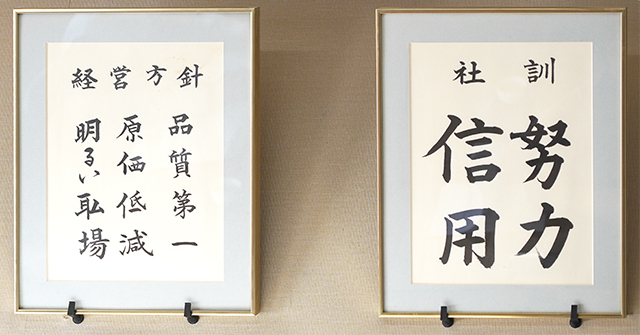 経営方針
品質第一
原価低減
明るい耺場
社訓
努力
信用